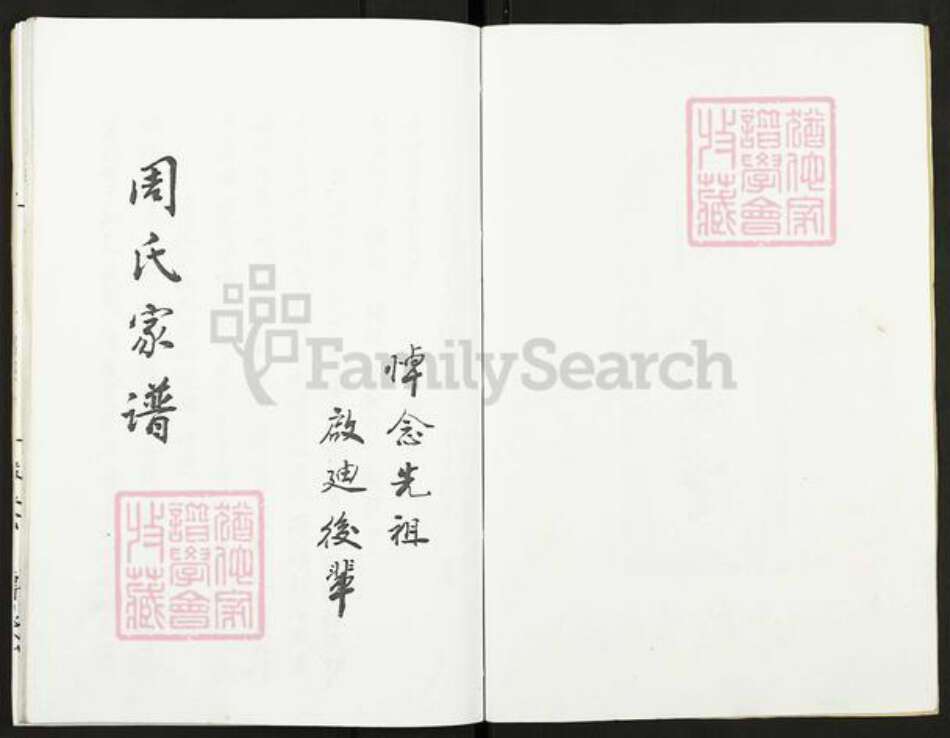 猶他家
譜學會
收藏
悼念先祖
啟廸後輩
周氏家谱
猶他家
譜學會
收藏
FamilySearch